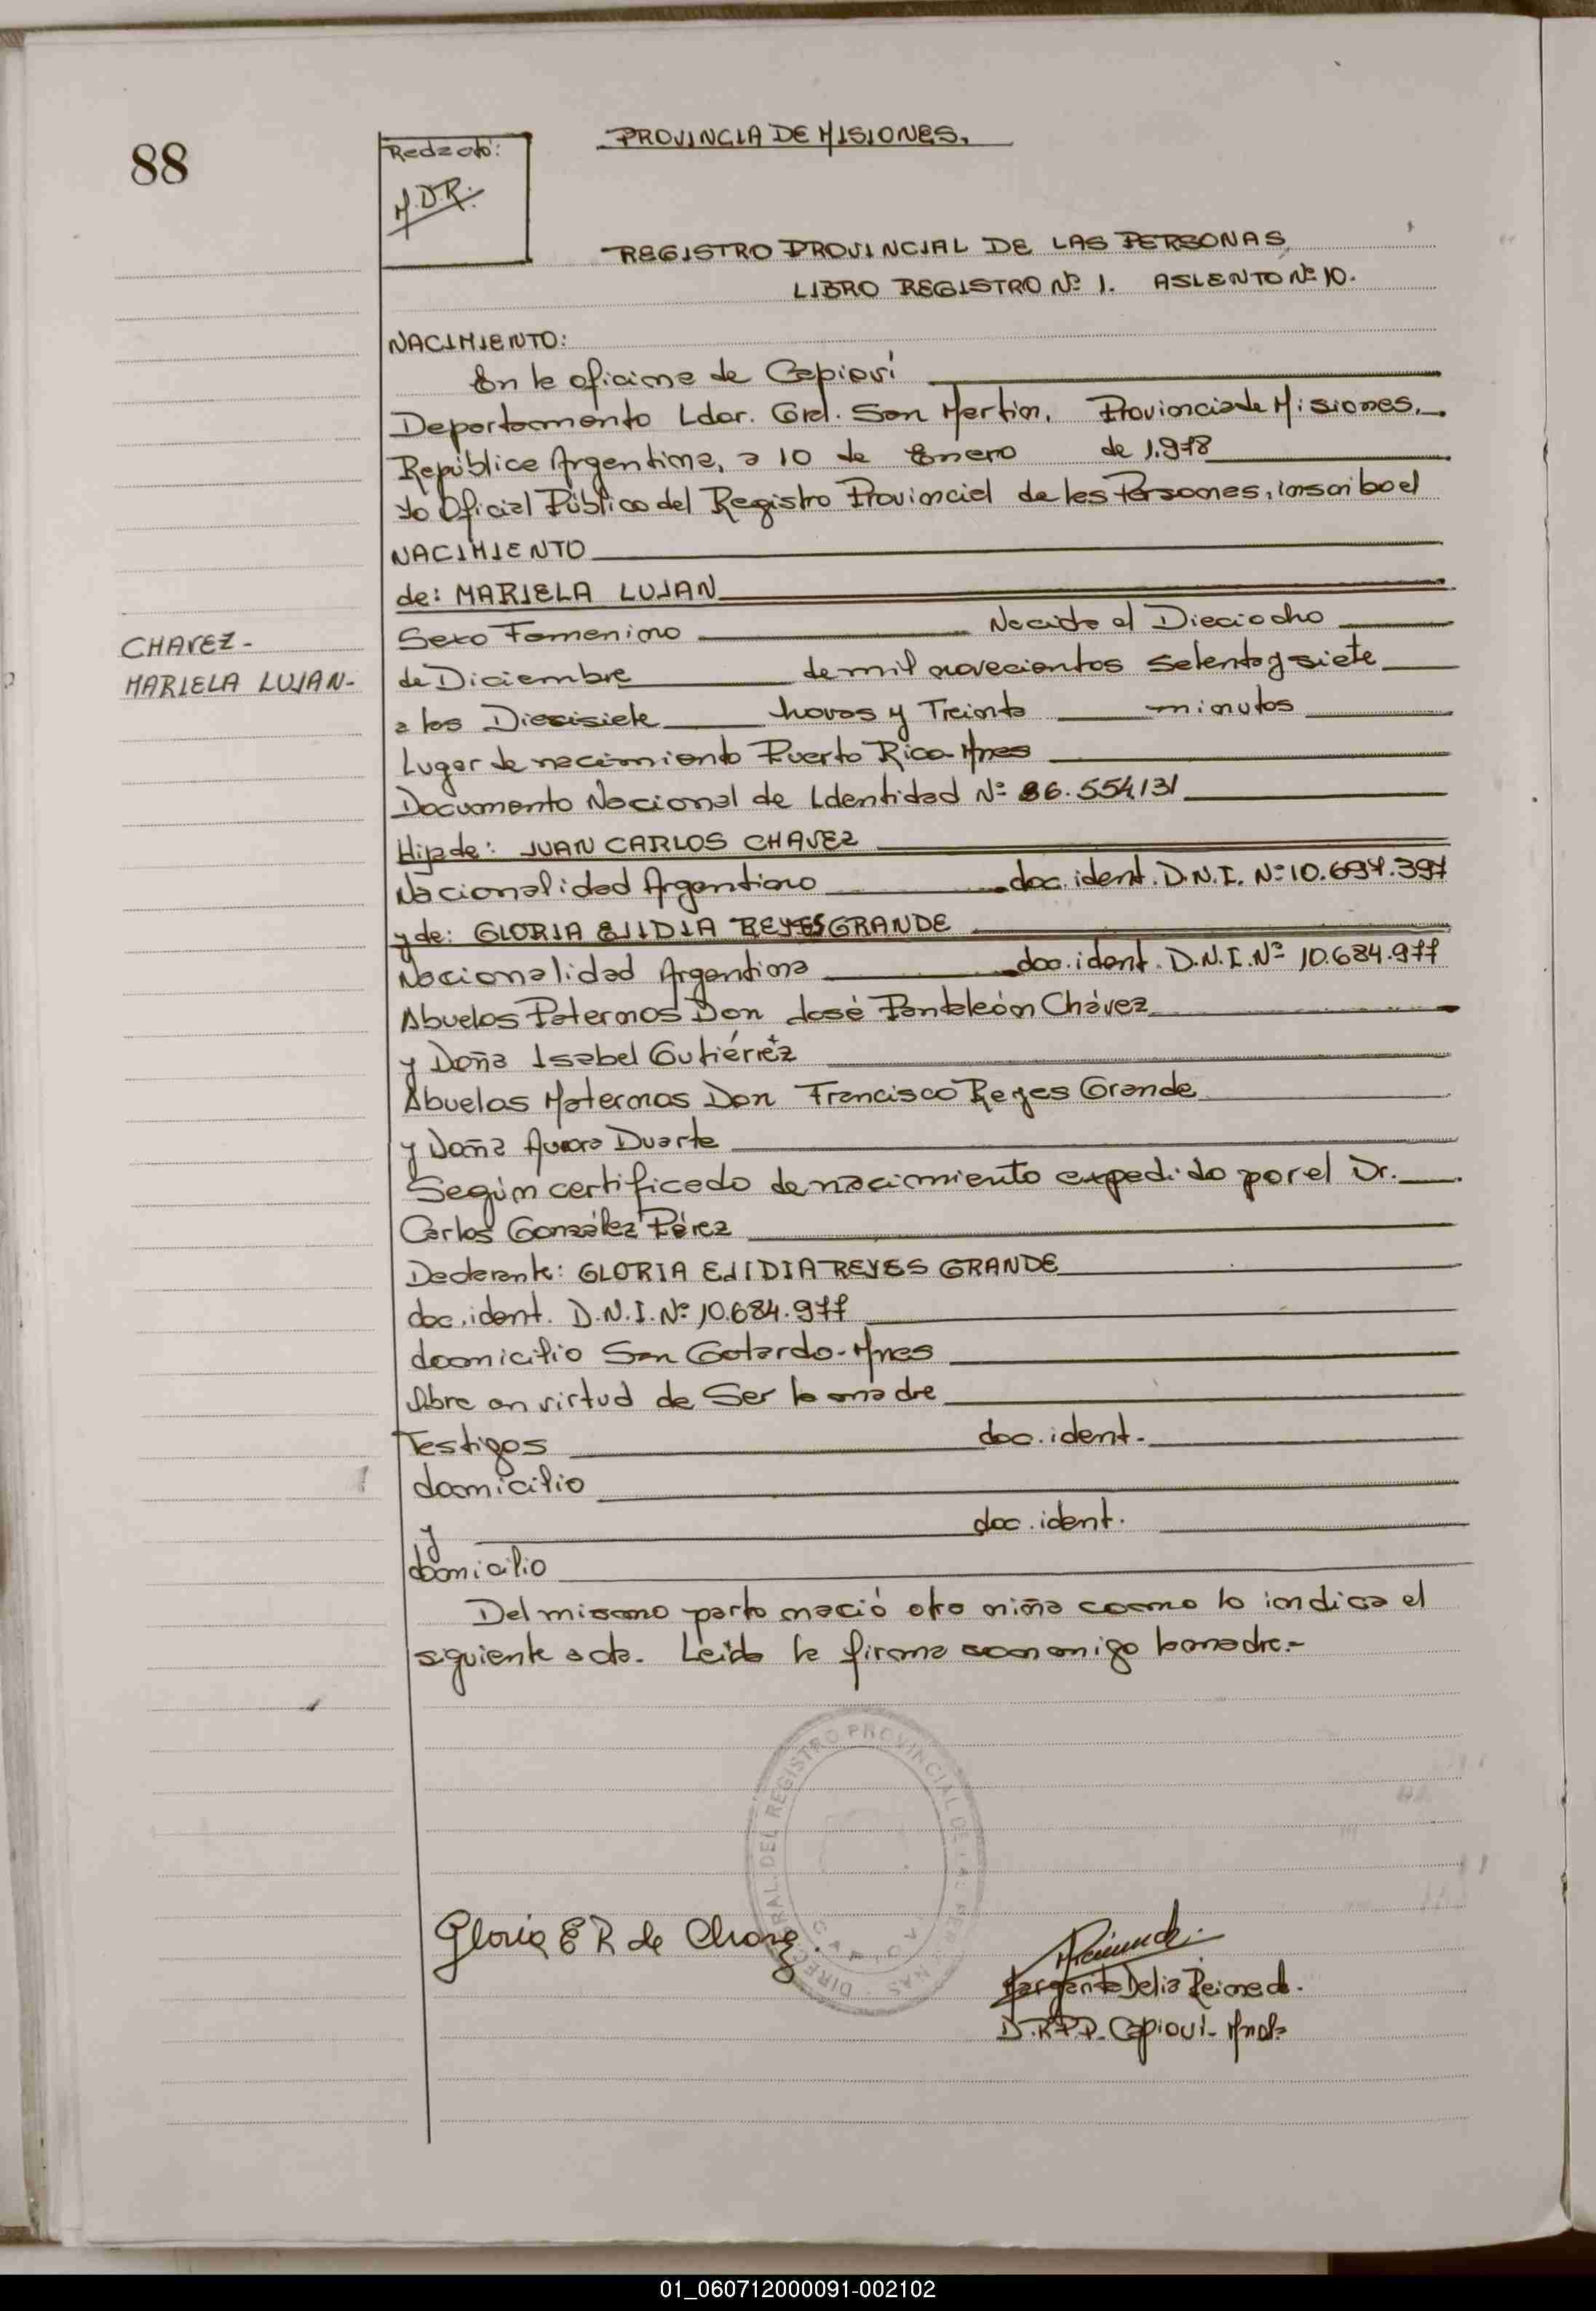 88
Redactó:
M.D.R.
PROVINCIA DE MISIONES.
REGISTRO PROVINCIAL DE LAS PERSONAS
LIBRO REGISTRO Nº 1. ASIENTO Nº 10.
NACIMIENTO:
En la oficina de Capioví
Departamento Ldor. Gral. San Martín, Provincia de Misiones,
República Argentina, a 10 de Enero de 1.978
Yo Oficial Público del Registro Provincial de las Personas, inscribo el
NACIMIENTO
de: MARIELA LUJAN
CHAVEZ-
MARIELA LUJAN-
Sexo Femenino Nacida el Dieciocho
de Diciembre de mil novecientos setenta y siete
a las Diecisiete horas y Treinta minutos
Lugar de nacimiento Puerto Rico-Mnes
Documento Nacional de Identidad Nº 26.554131
Hija de: JUAN CARLOS CHAVEZ
Nacionalidad Argentino doc. ident. D.N.I. Nº 10.697.397
y de: GLORIA ELIDIA REYES GRANDE
Nacionalidad Argentina doc. ident. D.N.I. Nº 10.684.977
Abuelos Paternos Don José Pantaleón Chávez
y Doña Isabel Gutiérrez
Abuelos Maternos Don Francisco Reyes Grande
y Doña Aurora Duarte
Según certificado de nacimiento expedido por el Dr.
Carlos González Pérez
Declarante: GLORIA ELIDIA REYES GRANDE
doc. ident. D.N.I. Nº 10.684.977
domicilio San Gotardo-Mnes
Obra en virtud de Ser la madre
Testigos doc. ident.
domicilio
y doc. ident.
domicilio
Del mismo parto nació otra niña como lo indica el
siguiente acta. Leída la firma conmigo la madre.-
DIREC. GRAL. DEL REGISTRO PROVINCIAL DE LAS PERSONAS
CAPIOVI
Gloria E R de Chavez.
Margarita Delia
D.R.P.P. Capioví-
01_060712000091-002102